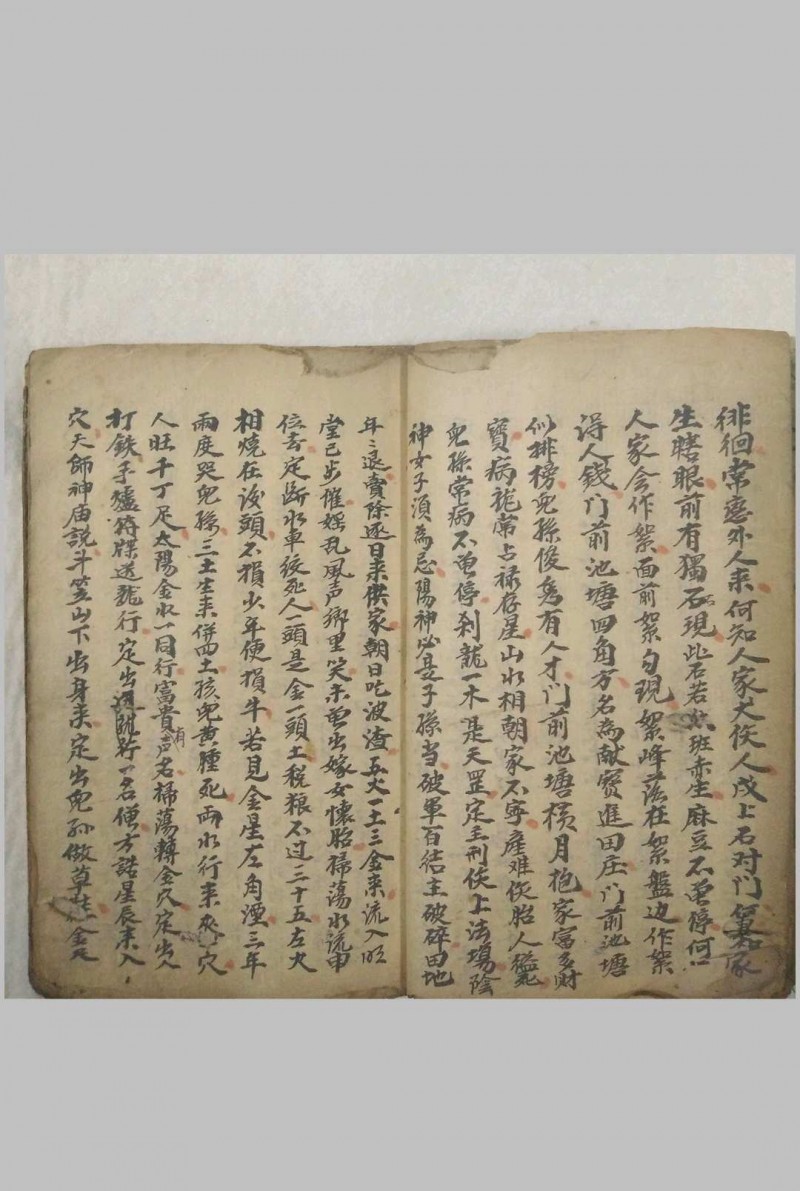 徘徊常惹外人来何知人家犬佽人戌上石对门
生瞎眼前有獨石現此石若班赤生麻豆不曾停何
人家会作絮面前絮勾現絮峰落在絮盤边作絮
得人錢门前池塘四角方名為献寶進田庄门前池塘
似排榜児孫俊秀有人才门前池塘横月抱家富多財
寶病龍蓆占禄存星山水相朝家不寜産难佽胎人
児孫常病不曾停刹龍一木是天罡定主刑佽上法場陰
神女子須為忌陽神必是子孫当破軍百结主破碎田地
年〻退賣除逐日来供家朝日吃波渣五火一土三金来流入
堂已步催婬乱風声鄉里笑未曾出嫁女懷胎掃荡水流申
位去定断水車絞死人一頭是金一頭土税粮不过二十五左火
相燒在後頭不損少年便損牛若見金星左角湮三年
兩度哭児孫三土生来併四土孩児黄腫死兩水行来穴
人旺千丁足太陽金水一同行富貴有声名掃荡轉金穴定出人
打鉄手爐符牒送號行定出行一名僧方誥星辰来入
穴天師神庙説斗笠山下出身来定出児孙做草金